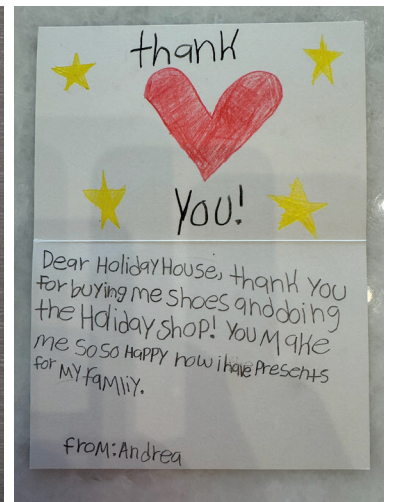 thank
You!
Dear Holiday House, thank you
for buying me shoes and doing
the Holiday shop! You Make
me so so Happy now i have Presents
for My famliy.
from: Andrea